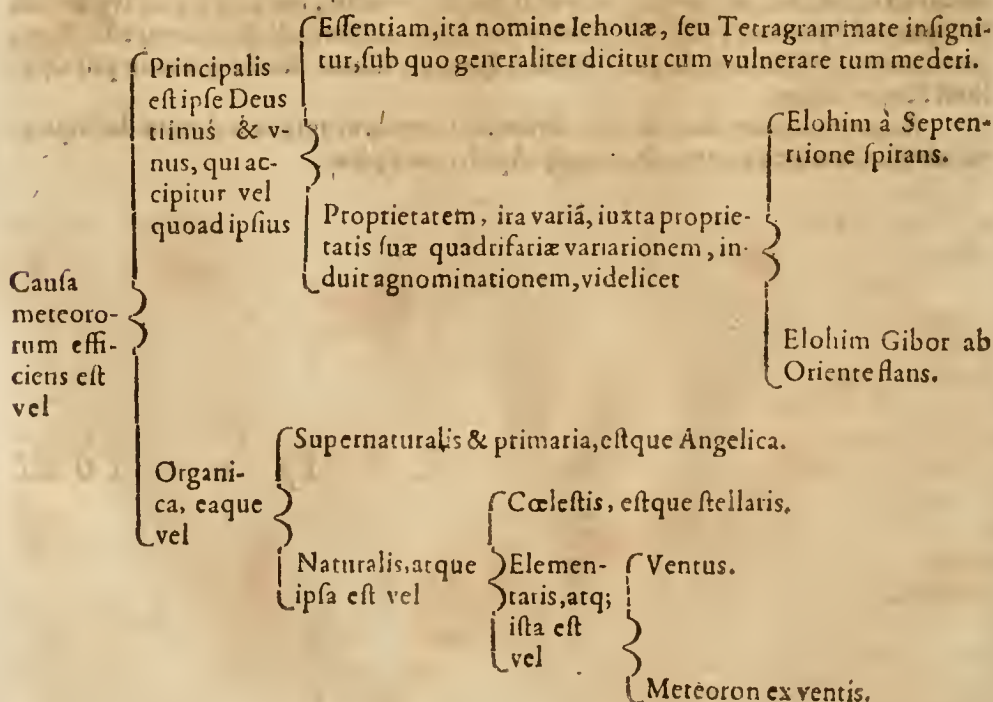 Causa
meteoro-
rum effi-
ciens est
vel
Principalis
est ipse Deus
trinus & v-
nus, qui ac-
cipitur vel
quoad ipsius
Essentiam, ita nomine Iehouæ, seu Tetragrammate insigni-
tur, sub quo generaliter dicitur cum vulnerare tum mederi.
Proprietatem, ita variã, iuxta proprie-
tatis suæ quadrifariæ variationem, in-
duit agnominationem, videlicet
Elohim à Septen-
trione spirans.
Elohim Gibor ab
Oriente flans.
Organi-
ca, eaque
vel
Supernaturalis & primaria, estque Angelica.
Naturalis, atque
ipsa est vel
Cœlestis, estque stellaris.
Elemen-
taris, atq;
ista est
vel
Ventus.
Meteoron ex ventis.